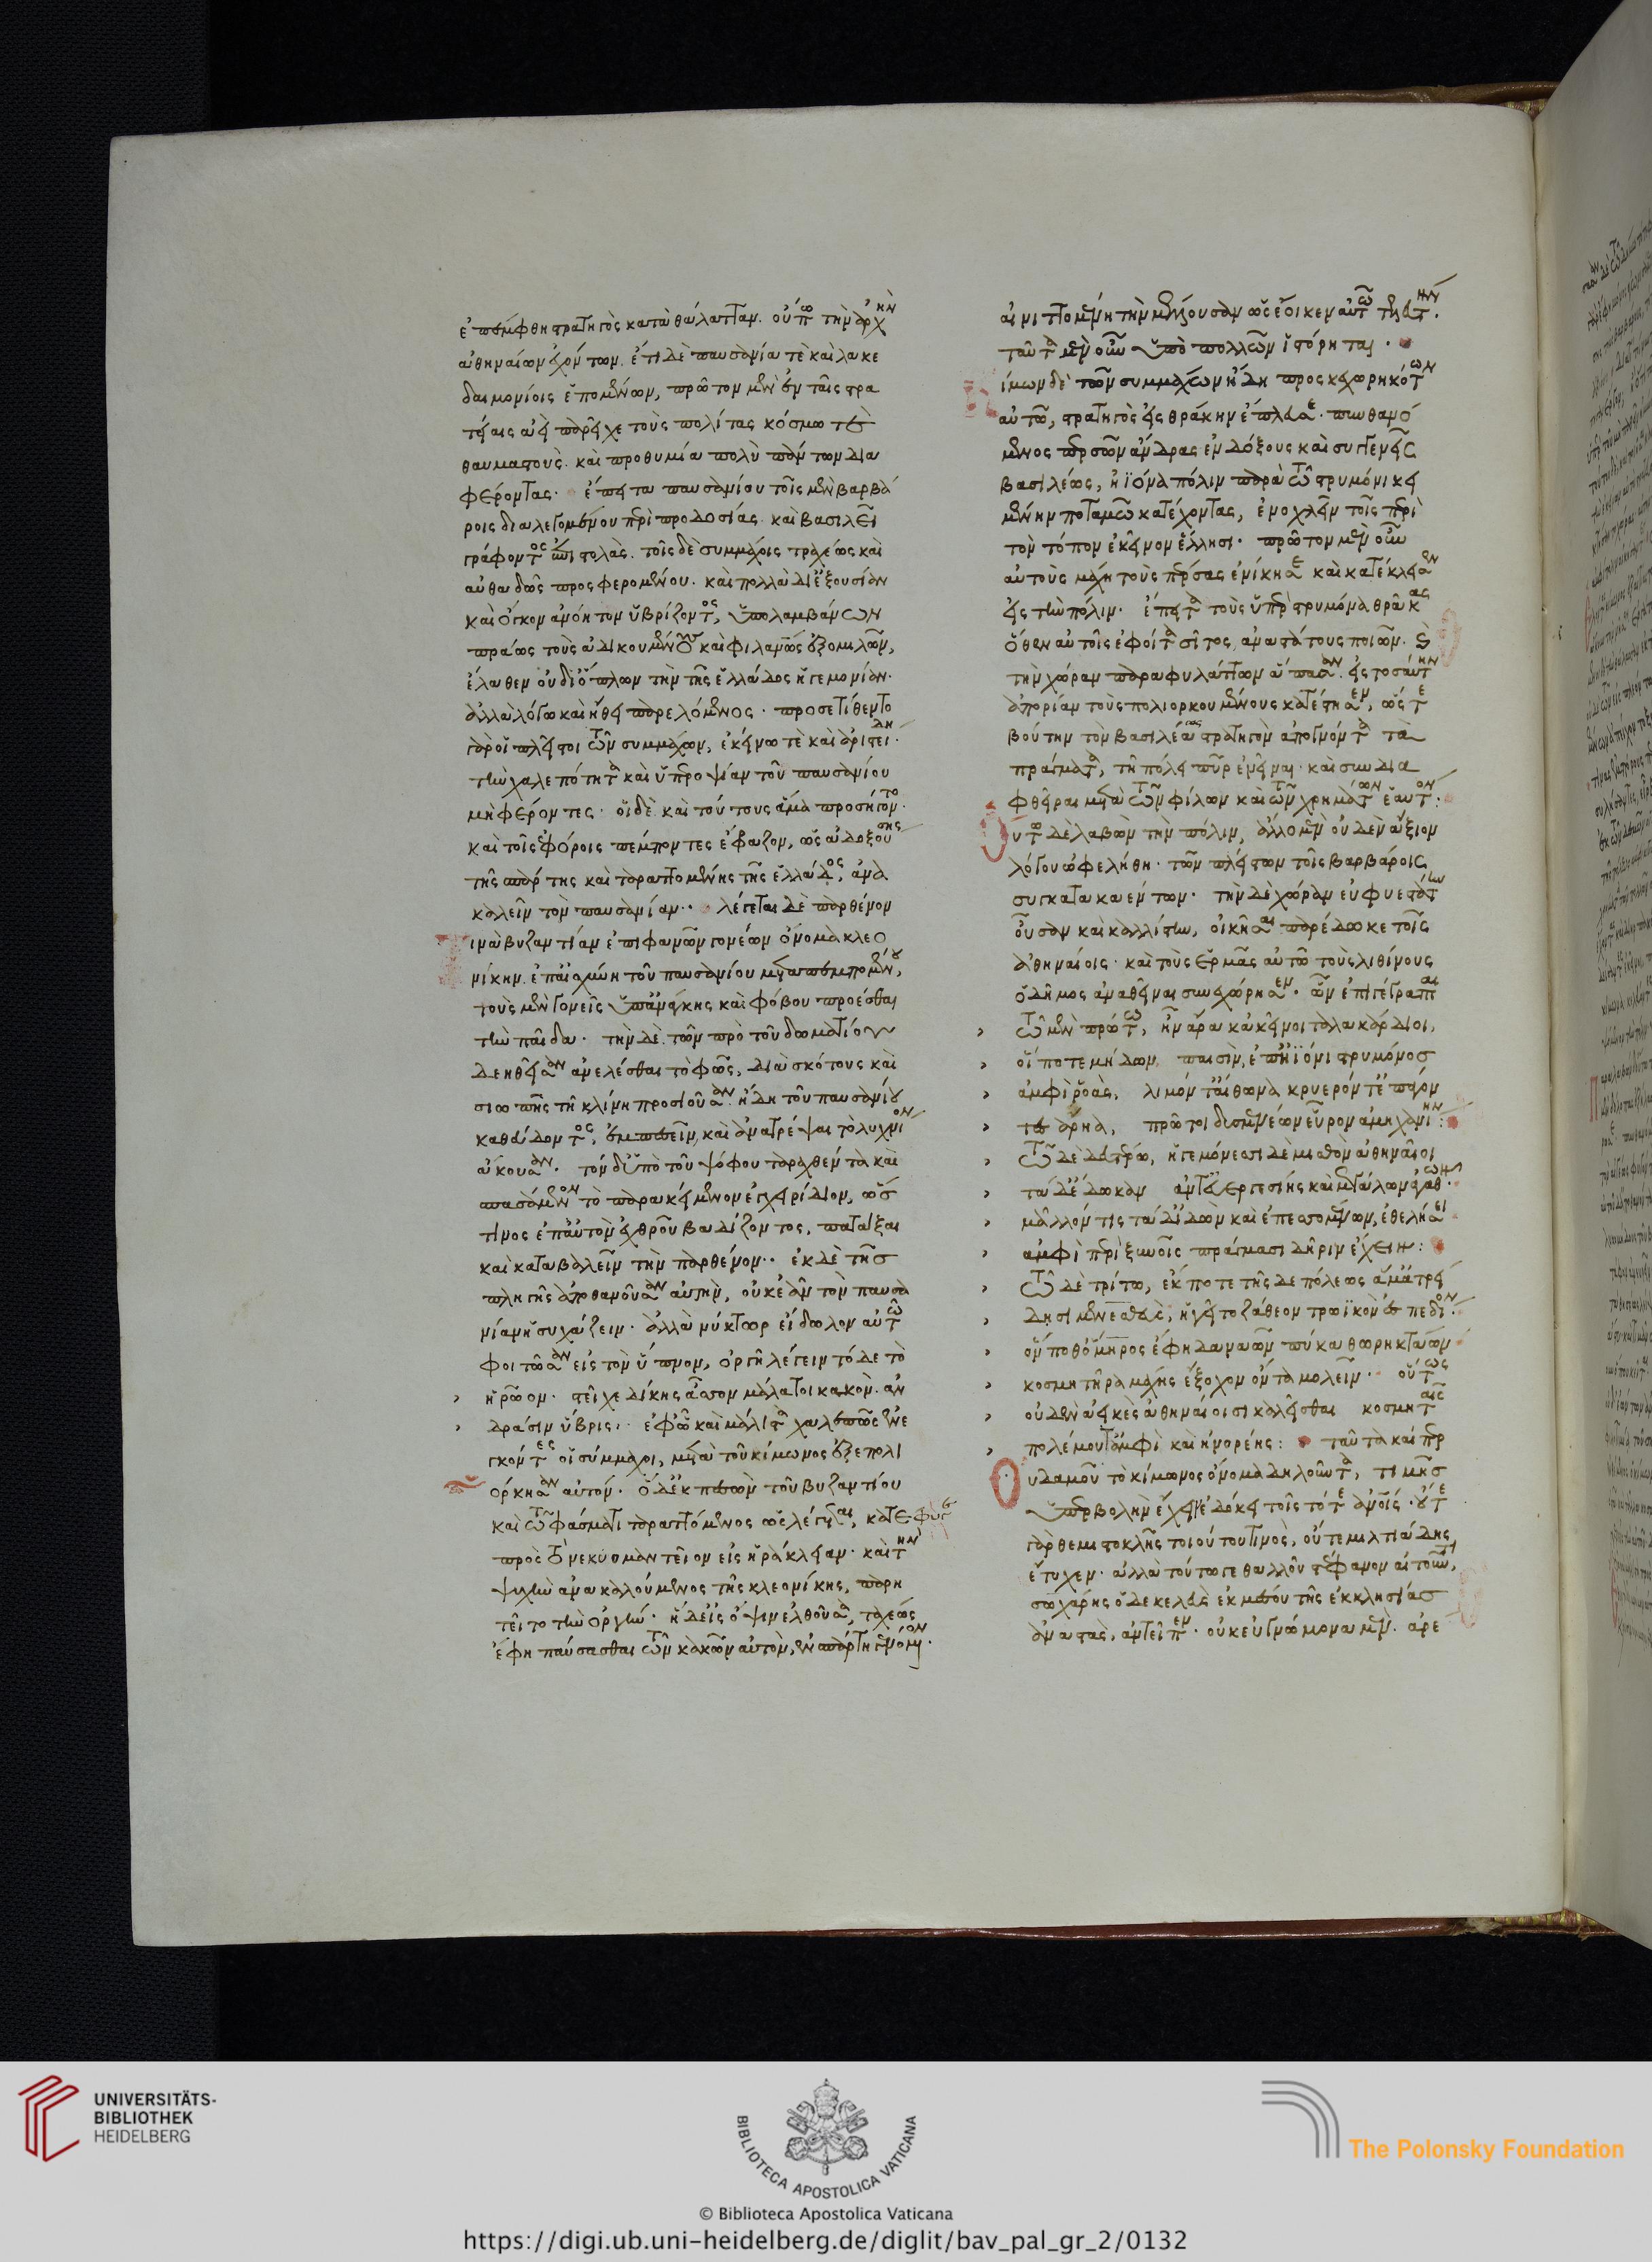 ἐπέμφθη στρατηγὸς κατὰ θάλατταν. οὔπω τὴν ἀρχὴν
ἀθηναίων ἐχόντων. ἔτι δὲ παυσανία τὲ καὶ λακε
δαιμονίοις ἑπομένων, πρῶτον μὲν ἐν ταῖς στρα
τείαις ἀεὶ παρεῖχε τοὺς πολίτας κόσμω τὲ
θαυμαστοὺς. καὶ προθυμία πολὺ πάντων δια
φέροντας· ἔπειτα παυσανίου τοῖς μὲν βαρβά
ροις διαλεγομένου περὶ προδοσίας. καὶ βασιλεῖ
γράφοντος ἐπιστολὰς. τοῖς δὲ συμμάχοις τραχέως καὶ
αὐθαδῶς προσφερομένου. καὶ πολλὰ δι' ἐξουσίαν
καὶ ὄγκον ἀνόητον ὑβρίζοντος, ὑπολαμβάνων
πράως τοὺς ἀδικουμένους καὶ φιλανθρώπως ἐξομιλῶν,
ἔλαθεν οὐ δι' ὅπλων τὴν τῆς ἑλλάδος ἡγεμονίαν.
ἀλλὰ λόγω καὶ ἤθει παρελόμενος. προσετίθεντο
γὰρ οἱ πλεῖστοι τῶν συμμάχων, ἐκείνω τὲ καὶ ἀριστείδη.
τὴν χαλεπότητα καὶ ὑπεροψίαν τοῦ παυσανίου
μὴ φέροντες. οἱ δὲ καὶ τούτους ἅμα προσήγοντο.
καὶ τοῖς ἐφόροις πέμποντες ἔφραζον, ὡς ἀδοξούσης
τῆς σπάρτης καὶ ταραττομένης τῆς ἑλλάδος, ἀνα
καλεῖν τὸν παυσανίαν·· λέγεται δὲ παρθένον
τινὰ βυζαντίαν ἐπιφανῶν γονέων ὄνομα κλεο
νίκην. ἐπ' αἰσχύνη τοῦ παυσανίου μεταπεμπομένου,
τοὺς μὲν γονεῖς ὑπ' ἀνάγκης καὶ φόβου προέσθαι
τὴν παῖδα. τὴν δὲ. τῶν πρὸ τοῦ δωματίου
δεηθεῖσαν ἀνελέσθαι τὸ φῶς, διὰ σκότους καὶ
σιωπῆς τῆ κλίνη προσιοῦσαν. ἤδη τοῦ παυσανίου
καθεύδοντος, ἐμπεσεῖν, καὶ ἀνατρέψαι τὸ λυχνίον
ἄκουσαν. τὸν δ' ὑπὸ τοῦ ψόφου ταραχθέντα καὶ
σπασάμενον τὸ παρακείμενον ἐγχειρίδιον, ὥς
τινος ἐπ' αὐτὸν ἐχθροῦ βαδίζοντος, πατάξαι
καὶ καταβαλεῖν τὴν παρθένον·· ἐκ δὲ τῆς
πληγῆς ἀποθανοῦσαν αὐτὴν, οὐκ ἐᾶν τὸν παυσα
νίαν ἡσυχάζειν. ἀλλὰ νύκτωρ εἴδωλον αὐτῶ
φοιτῶσαν εἰς τὸν ὕπνον, ὀργῆ λέγειν τόδε τὸ
ἡρῶον. στεῖχε δίκης ἆσσον μάλα τοι κακὸν. ἀν
δράσιν ὕβρις·· ἐφ' ὧ καὶ μάλιστα χαλεπῶς ἐνε
γκόντες οἱ σύμμαχοι, μετὰ τοῦ κίμωνος ἐξεπολι
όρκησαν αὐτόν. ὁ δ' ἐκπεσὼν τοῦ βυζαντίου
καὶ τῶ φάσματι ταραττόμενος ὡς λέγεται, κατέφυγε
πρὸς τὸ νεκυομαντεῖον εἰς ἡράκλειαν. καὶ τὴν
ψυχὴν ἀνακαλούμενος τῆς κλεονίκης, παρη
τεῖτο τὴν ὀργὴν. ἡ δ' εἰς ὄψιν ἐλθοῦσα, ταχέως
ἔφη παύσασθαι τῶν κακῶν αὐτὸν, ἐν σπάρτη γενόμενον.
αἰνιττομένη τὴν μέλλουσαν ὡς ἔοικεν αὐτῶ τελευτήν.
ταῦτα μὲν οὖν ὑπὸ πολλῶν ἱστόρηται.
ίμων δὲ τῶν συμμάχων ἤδη προσκεχωρηκότων
αὐτῶ, στρατηγὸς εἰς θράκην ἔπλευσε. πυνθανό
μενος περσῶν ἄνδρας ἐνδόξους καὶ συγγενεῖς
βασιλέως, ἠϊόνα πόλιν παρὰ τῶ στρυμόνι κει
μένην ποταμῶ κατέχοντας, ἐνοχλεῖν τοῖς περὶ
τὸν τόπον ἐκεῖνον ἕλλησι. πρῶτον μὲν οὖν
αὐτοὺς μάχη τοὺς πέρσας ἐνίκησε καὶ κατέκλεισεν
εἰς τὴν πόλιν. ἔπειτα τοὺς ὑπὲρ στρυμόνα θρᾶκας
ὅθεν αὐτοῖς ἐφοίτα σῖτος, ἀναστάτους ποιῶν. καὶ
τὴν χώραν παραφυλάττων ἅπασαν. εἰς τοσαύτην
ἀπορίαν τοὺς πολιορκουμένους κατέστησεν, ὥστε
βούτην τὸν βασιλέως στρατηγὸν ἀπογνόντα τὰ
πράγματα, τῆ πόλει πῦρ ἐνεῖναι. καὶ συνδια
φθεῖραι μετὰ τῶν φίλων καὶ τῶν χρημάτων ἑαυτόν:
οὕτω δὲ λαβὼν τὴν πόλιν, ἄλλο μὲν οὐδὲν ἄξιον
λόγου ὠφελήθη. τῶν πλείστων τοῖς βαρβάροις
συγκατακαέντων. τὴν δὲ χώραν εὐφυεστάτην
οὖσαν καὶ καλλίστην, οἰκῆσαι παρέδωκε τοῖς
ἀθηναίοις. καὶ τοὺς ἑρμᾶς αὐτῶ τοὺς λιθίνους
ὁ δῆμος ἀναθεῖναι συνεχώρησεν. ὧν ἐπιγέγραπται
τῶ μὲν πρώτω, ἦν ἄρα κἀκεῖνοι ταλακάρδιοι,
οἵ ποτε μήδων παισὶν, ἐπ' ἠϊόνι στρυμόνος
ἀμφὶ ῥοὰς, λιμόν τ' αἴθωνα κρυερόν τ' ἐπάγον
τες ἄρηα, πρῶτοι δυσμενέων εὗρον ἀμηχανίην:
τῶ δὲ δευτέρω, ἡγεμόνεσσι δὲ μισθὸν ἀθηναῖοι
τάδ' ἔδωκαν ἀντ' εὐεργεσίης καὶ μεγάλων ἀγαθῶν.
μᾶλλόν τις τάδ' ἰδὼν καὶ ἐπεσσομένων, ἐθελήσει
ἀμφὶ περὶ ξυνοῖς πράγμασι δῆριν ἔχειν:
τῶ δὲ τρίτω, ἔκ ποτε τῆσδε πόλεως ἅμ' ἀτρεί
δησι μενεσθεὺς, ἡγεῖτο ζάθεον τρωϊκὸν ἐς πεδίον.
ὅν ποθ' ὅμηρος ἔφη δαναῶν πύκα θωρηκτάων
κοσμητῆρα μάχης ἔξοχον ὄντα μολεῖν. οὕτως
οὐδὲν ἀεικὲς ἀθηναίοισι καλεῖσθαι κοσμηταῖς
πολέμου τ' ἀμφὶ καὶ ἠνορέης: ταῦτα καίπερ
οὐδαμοῦ τὸ κίμωνος ὄνομα δηλοῦντα, τιμῆς
ὑπερβολὴν ἔχειν ἐδόκει τοῖς τότε ἀνθρώποις. οὔτε
γὰρ θεμιστοκλῆς τοιούτου τινὸς, οὔτε μιλτιάδης
ἔτυχεν. ἀλλὰ τούτω γε θαλλοῦ στέφανον αἰτοῦντι,
σωχάρης ὁ δεκελεὺς ἐκ μέσου τῆς ἐκκλησίας
ἀναστὰς, ἀντεῖπεν. οὐκ εὐγνώμονα μὲν. ἀρέ
UNIVERSITÄTS-
BIBLIOTHEK
HEIDELBERG
BIBLIOTECA APOSTOLICA VATICANA
The Polonsky Foundation
© Biblioteca Apostolica Vaticana
https://digi.ub.uni-heidelberg.de/diglit/bav_pal_gr_2/0132